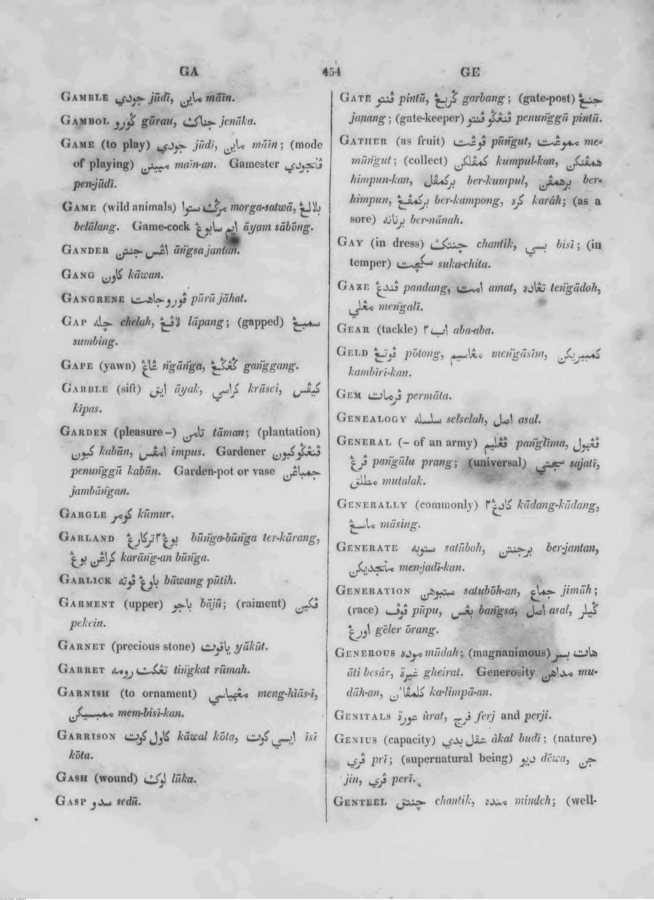 GA
454
GE
GAMBLE جودي jūdī, ماين māīn.
GAMBOL گورو gūrau, جناک jenāka.
GAME (to play) جودي jūdī, ماين māīn; (mode
of playing) ميئنن maīn-an. Gamester ڤنجودي
pen-jūdī.
GAME (wild animals) مرݢ ستوا morga-satwā, بلالڠ
belālang. Game-cock ايم سابوڠ āyam sābūng.
GANDER اڠس جنتن āṅgsa jantan.
GANG کاون kāwan.
GANGRENE ڤورو جاهت pūrū jāhat.
GAP چله chelah, لاڤڠ lāpang; (gapped) سمبيڠ
sumbing.
GAPE (yawn) ڠاڠ ṅgāṅga, ݢڠݢڠ gaṅggang.
GARBLE (sift) ايق āyak, کراسي krāsei, کيڤس
kīpas.
GARDEN (pleasure-) تامن tāman; (plantation)
کبون kabūn, امڤس impus. Gardener ڤنڠݢوکبون
penunggū kabūn. Garden-pot or vase جمباڠن
jambāṅgan.
GARGLE کومر kūmur.
GARLAND بوڠ٢ ترکارڠ būṅga-būṅga ter-kārang,
کراڠن بوڠ karāng-an būṅga.
GARLICK باوڠ ڤوته bāwang pūtih.
GARMENT (upper) باجو bājū; (raiment) ڤکين
pekein.
GARNET (precious stone) ياقوت yākūt.
GARRET تڠکت رومه tiṅgkat rūmah.
GARNISH (to ornament) مڠهياسي meng-hiās-i,
ممبيسيکن mem-bisī-kan.
GARRISON کاول کوت kāwal kōta, ايسي کوت īsī
kōta.
GASH (wound) لوک lūka.
GASP سدو sedū.
GATE ڤنتو pintū, ݢربڠ garbang; (gate-post) جنڠ
janang; (gate-keeper) ڤنڠݢو ڤنتو penunggū pintū.
GATHER (as fruit) ڤوڠت pūṅgut, مموڠت me-
mūṅgut; (collect) کمڤلکن kumpul-kan, همڤنکن
himpun-kan, برکمڤل ber-kumpul, برهمڤن ber-
himpun, برکمڤڠ ber-kampong, کره karāh; (as a
sore) برنانه ber-nānah.
GAY (in dress) چنتک chantik, بسي bisī; (in
temper) سکچت suka-chita.
GAZE ڤندڠ pandang, امت amat, تڠاده teṅgādoh,
مڠلي meṅgalī.
GEAR (tackle) اب٢ aba-aba.
GELD ڤوتڠ pōtong, مڠاسيم meṅgāsīm, کمبيريکن
kambīrī-kan.
GEM ڤرمات permāta.
GENEALOGY سلسله selselah, اصل asal.
GENERAL (- of an army) ڤڠليم paṅglīma, ڤڠهول
ڤرڠ paṅgūlu prang; (universal) سجتي sajatī,
مطلق mutalak.
GENERALLY (commonly) کادڠ٢ kādang-kādang,
ماسڠ māsing.
GENERATE ستوبه satūboh, برجنتن ber-jantan,
منجديکن men-jadī-kan.
GENERATION ستبوهن satubōh-an, جماع jimāh;
(race) ڤوڤ pūpu, بڠس baṅgsa, اصل asal, ݢيلر
اورڠ gēler ōrang.
GENEROUS موده mūdah; (magnanimous) هات بسر
āti besár, غيرة gheirat. Generosity مداهن mu-
dāh-an, کلمڤاٴن ka-limpā-an.
GENITALS عورة ūrat, فرج ferj and perji.
GENIUS (capacity) عقل بدي ākal budī; (nature)
ڤري prī; (supernatural being) ديو dēwa, جن
jin, ڤري perī.
GENTEEL چنتق chantik, منده mindeh; (well-